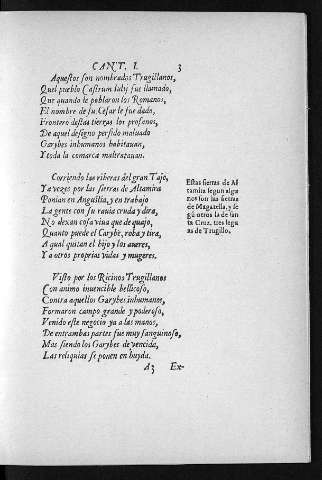 CANT. I. 3
Aquestos son nombrados Trugillanos,
Quel pueblo Castrum Iulij fue llamado,
Que quando le poblaron los Romanos,
El nombre de su Cesar le fue dado,
Frontero destas tierras los profanos,
De aquel designo perfido maluado
Garybes inhumanos habitauan,
Y toda la comarca maltratauan.
Corriendo las riberas del gran Tajo,
Y a vezes por las sierras de Altamira
Ponian en Angustia, y en trabajo
La gente con su rauia cruda y dira,
No dexan cosa viua que de quajo,
Quanto puede el Carybe, roba y tira,
A qual quitan el hijo y los aueres,
Y a otros proprias vidas y mugeres.
Estas sierras de Al
tamira segun algu
nos son las sierras
de Magasella, y se
gũ otros la de san
ta Cruz, tres legu
as de Trugillo.
Visto por los Ricinos Trugillanos
Con animo inuencible bellicoso,
Contra aquellos Garybes inhumanos,
Formaron campo grande y poderoso,
Venido este negocio ya a las manos,
De entrambas partes fue muy sanguinoso,
Mas siendo los Garybes de vencida,
Las reliquias se ponen en huyda.
A3 Ex-